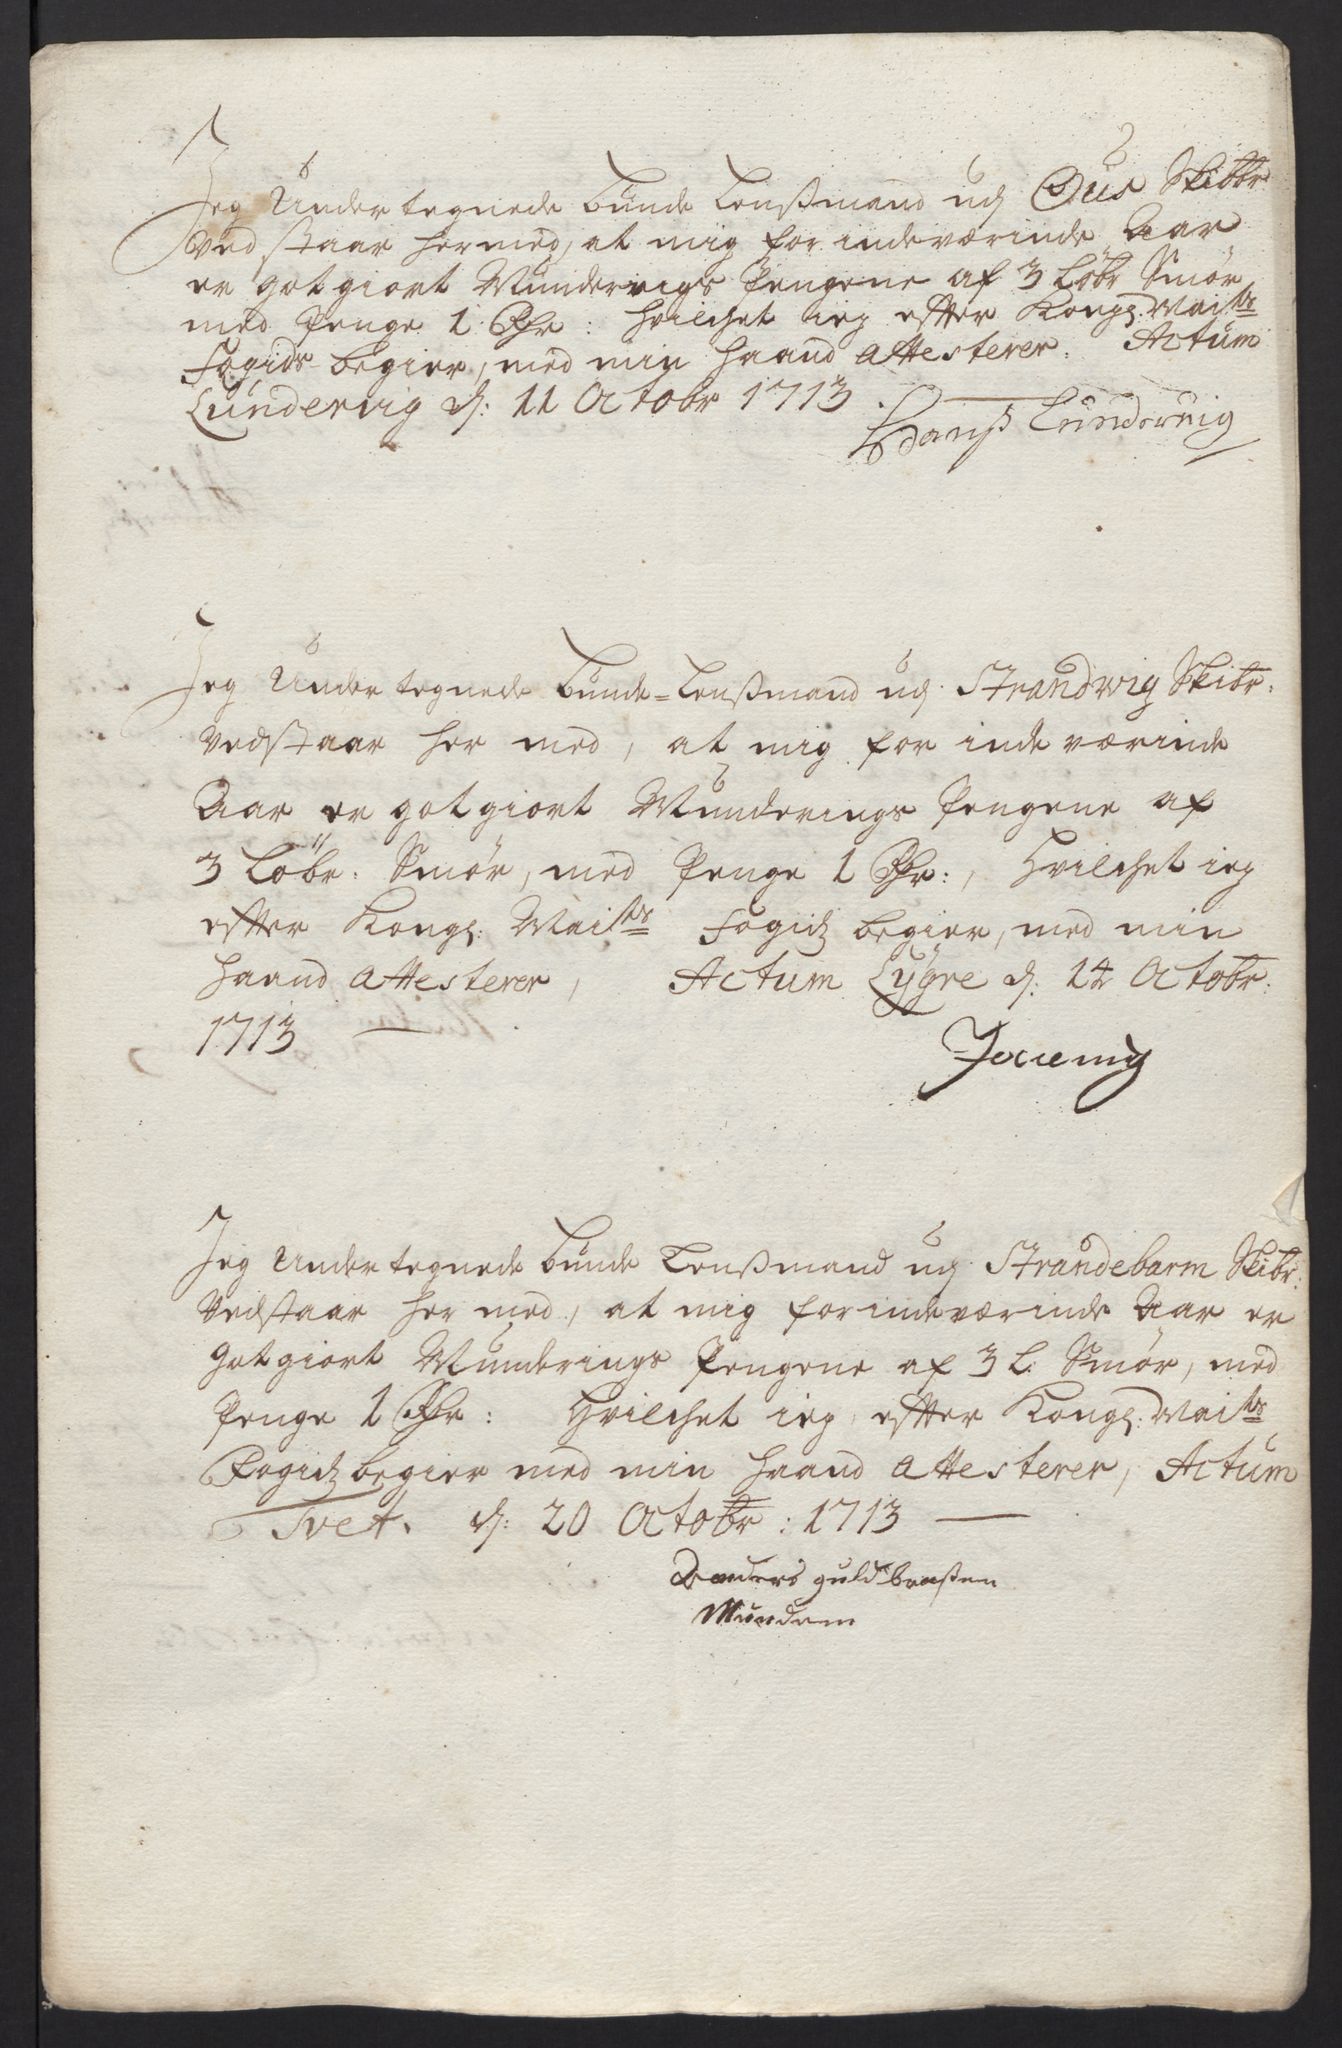 Jeg Under tegnede bunde Lensmand ud Ous Skibbr
ved staar hermed, at mig for indeværinde Aar
er got giort Munderings Pengene af 3 Löbr Smör
med Penge 1 Rdr: Hvilchet ieg efter Kongl: Maits
Fogids begier, med min haand attesterer. Actum
Lundervig d: 11 Octobr 1713.
Hanß Lundervig
Jeg Under tegnede bunde-Lenßmand ud Strandwig Skibr:
vedstaar her med, at mig for inde værinde
Aar er got giort Munderings Pengene af
3 Löbr. Smör, med Penge 1 Rdr:, Hvilchet ieg
efter Kongl: Maits Fogidz begier, med min
haand attesterer, Actum Lygre d: 14 Octobr:
1713
Jeg Under tegnede bunde Lenßmand ud Strandebarm Skibr:
vedstaar her med, at mig for indeværinde Aar er
got giort Munderings Pengene af 3 L: Smör, med
Penge 1 Rdr: Hvilchet ieg efter Kongl: Maits
Fogidz begier med min haand attesterer, Actum
Tvet. d: 20 Octobr: 1713
Anders guldbraßen
Mundem